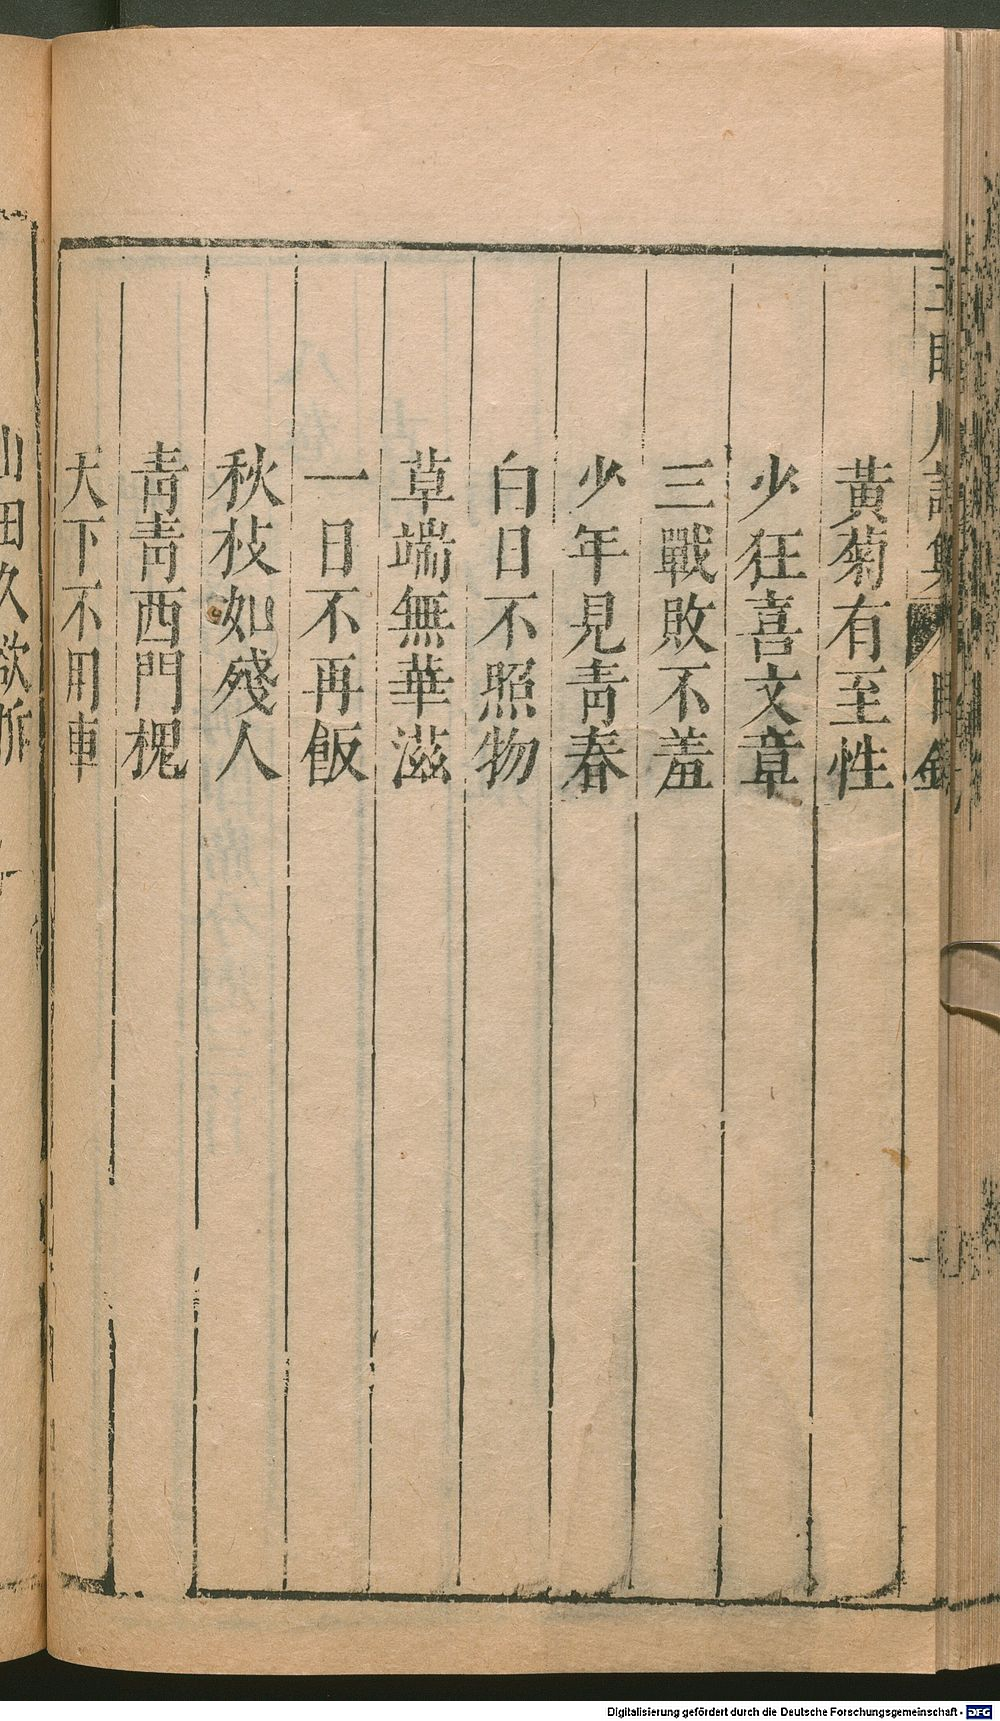 黃菊有至性
少狂喜文章
三戰敗不羞
少年見靑春
白日不照物
草端無華滋
一日不再飯
秋枝如殘人
靑靑西門槐
天下不用車
山田久欲拆
Digitalisierung gefördert durch die Deutsche Forschungsgemeinschaft - DFG